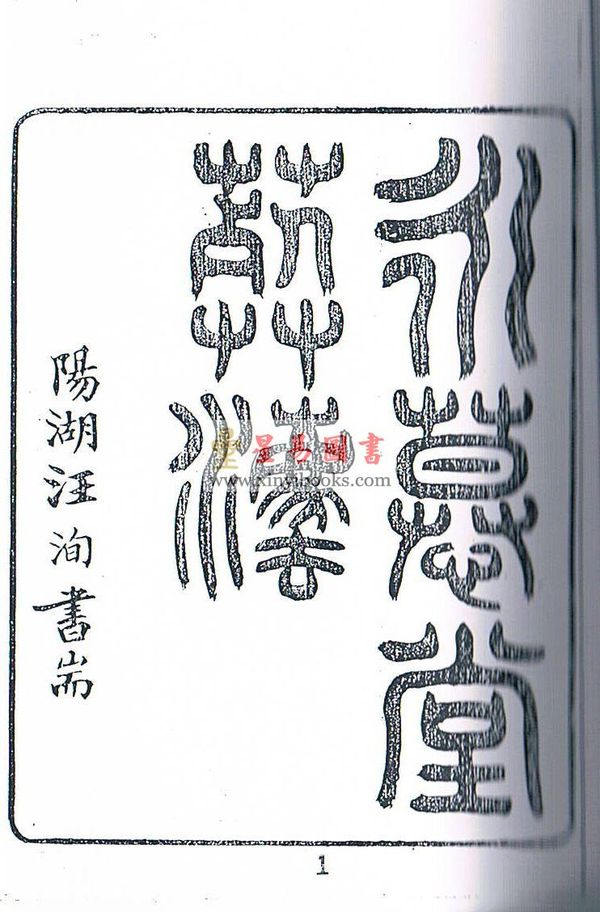 永慕堂
葬灋
陽湖汪洵書耑
星易圖書
www.xinyibooks.com
1